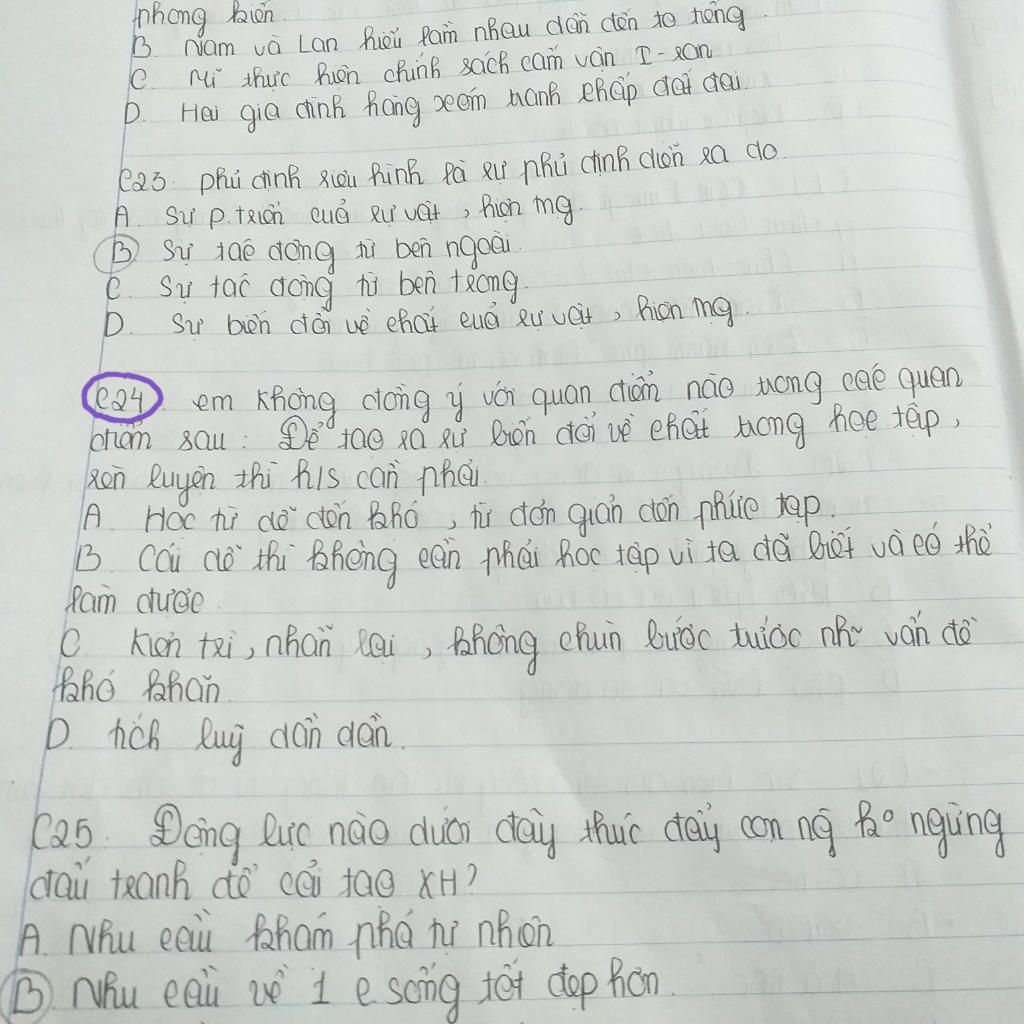 phong kiến.
B. Nam và Lan hiểu lầm nhau dẫn đến to tiếng.
C. Mĩ thực hiện chính sách cấm vận I-ran.
D. Hai gia đình hàng xóm tranh chấp đất đai.
C23. phủ định siêu hình là sự phủ định diễn ra do
A. Sự p.triển của sự vật, hiện mg.
B Sự tác động từ bên ngoài.
C. Sự tác động từ bên trong.
D. Sự biến đổi về chất của sự vật, hiện mg.
C24 em không đồng ý với quan điểm nào trong các quan
điểm sau: Để tạo ra sự biến đổi về chất trong học tập,
rèn luyện thì h/s cần phải.
A. Học từ dễ đến khó, từ đơn giản đến phức tạp.
B. Cái dễ thì không cần phải học tập vì ta đã biết và có thể
làm được.
C. Kiên trì, nhẫn lại, không chùn bước trước nh~ vấn đề
khó khăn.
D. tích luỹ dần dần.
C25. Động lực nào dưới đây thúc đẩy con ng k° ngừng
đấu tranh để cải tạo XH?
A. Nhu cầu khám phá tự nhiên
B Nhu cầu về 1 c sống tốt đẹp hơn.